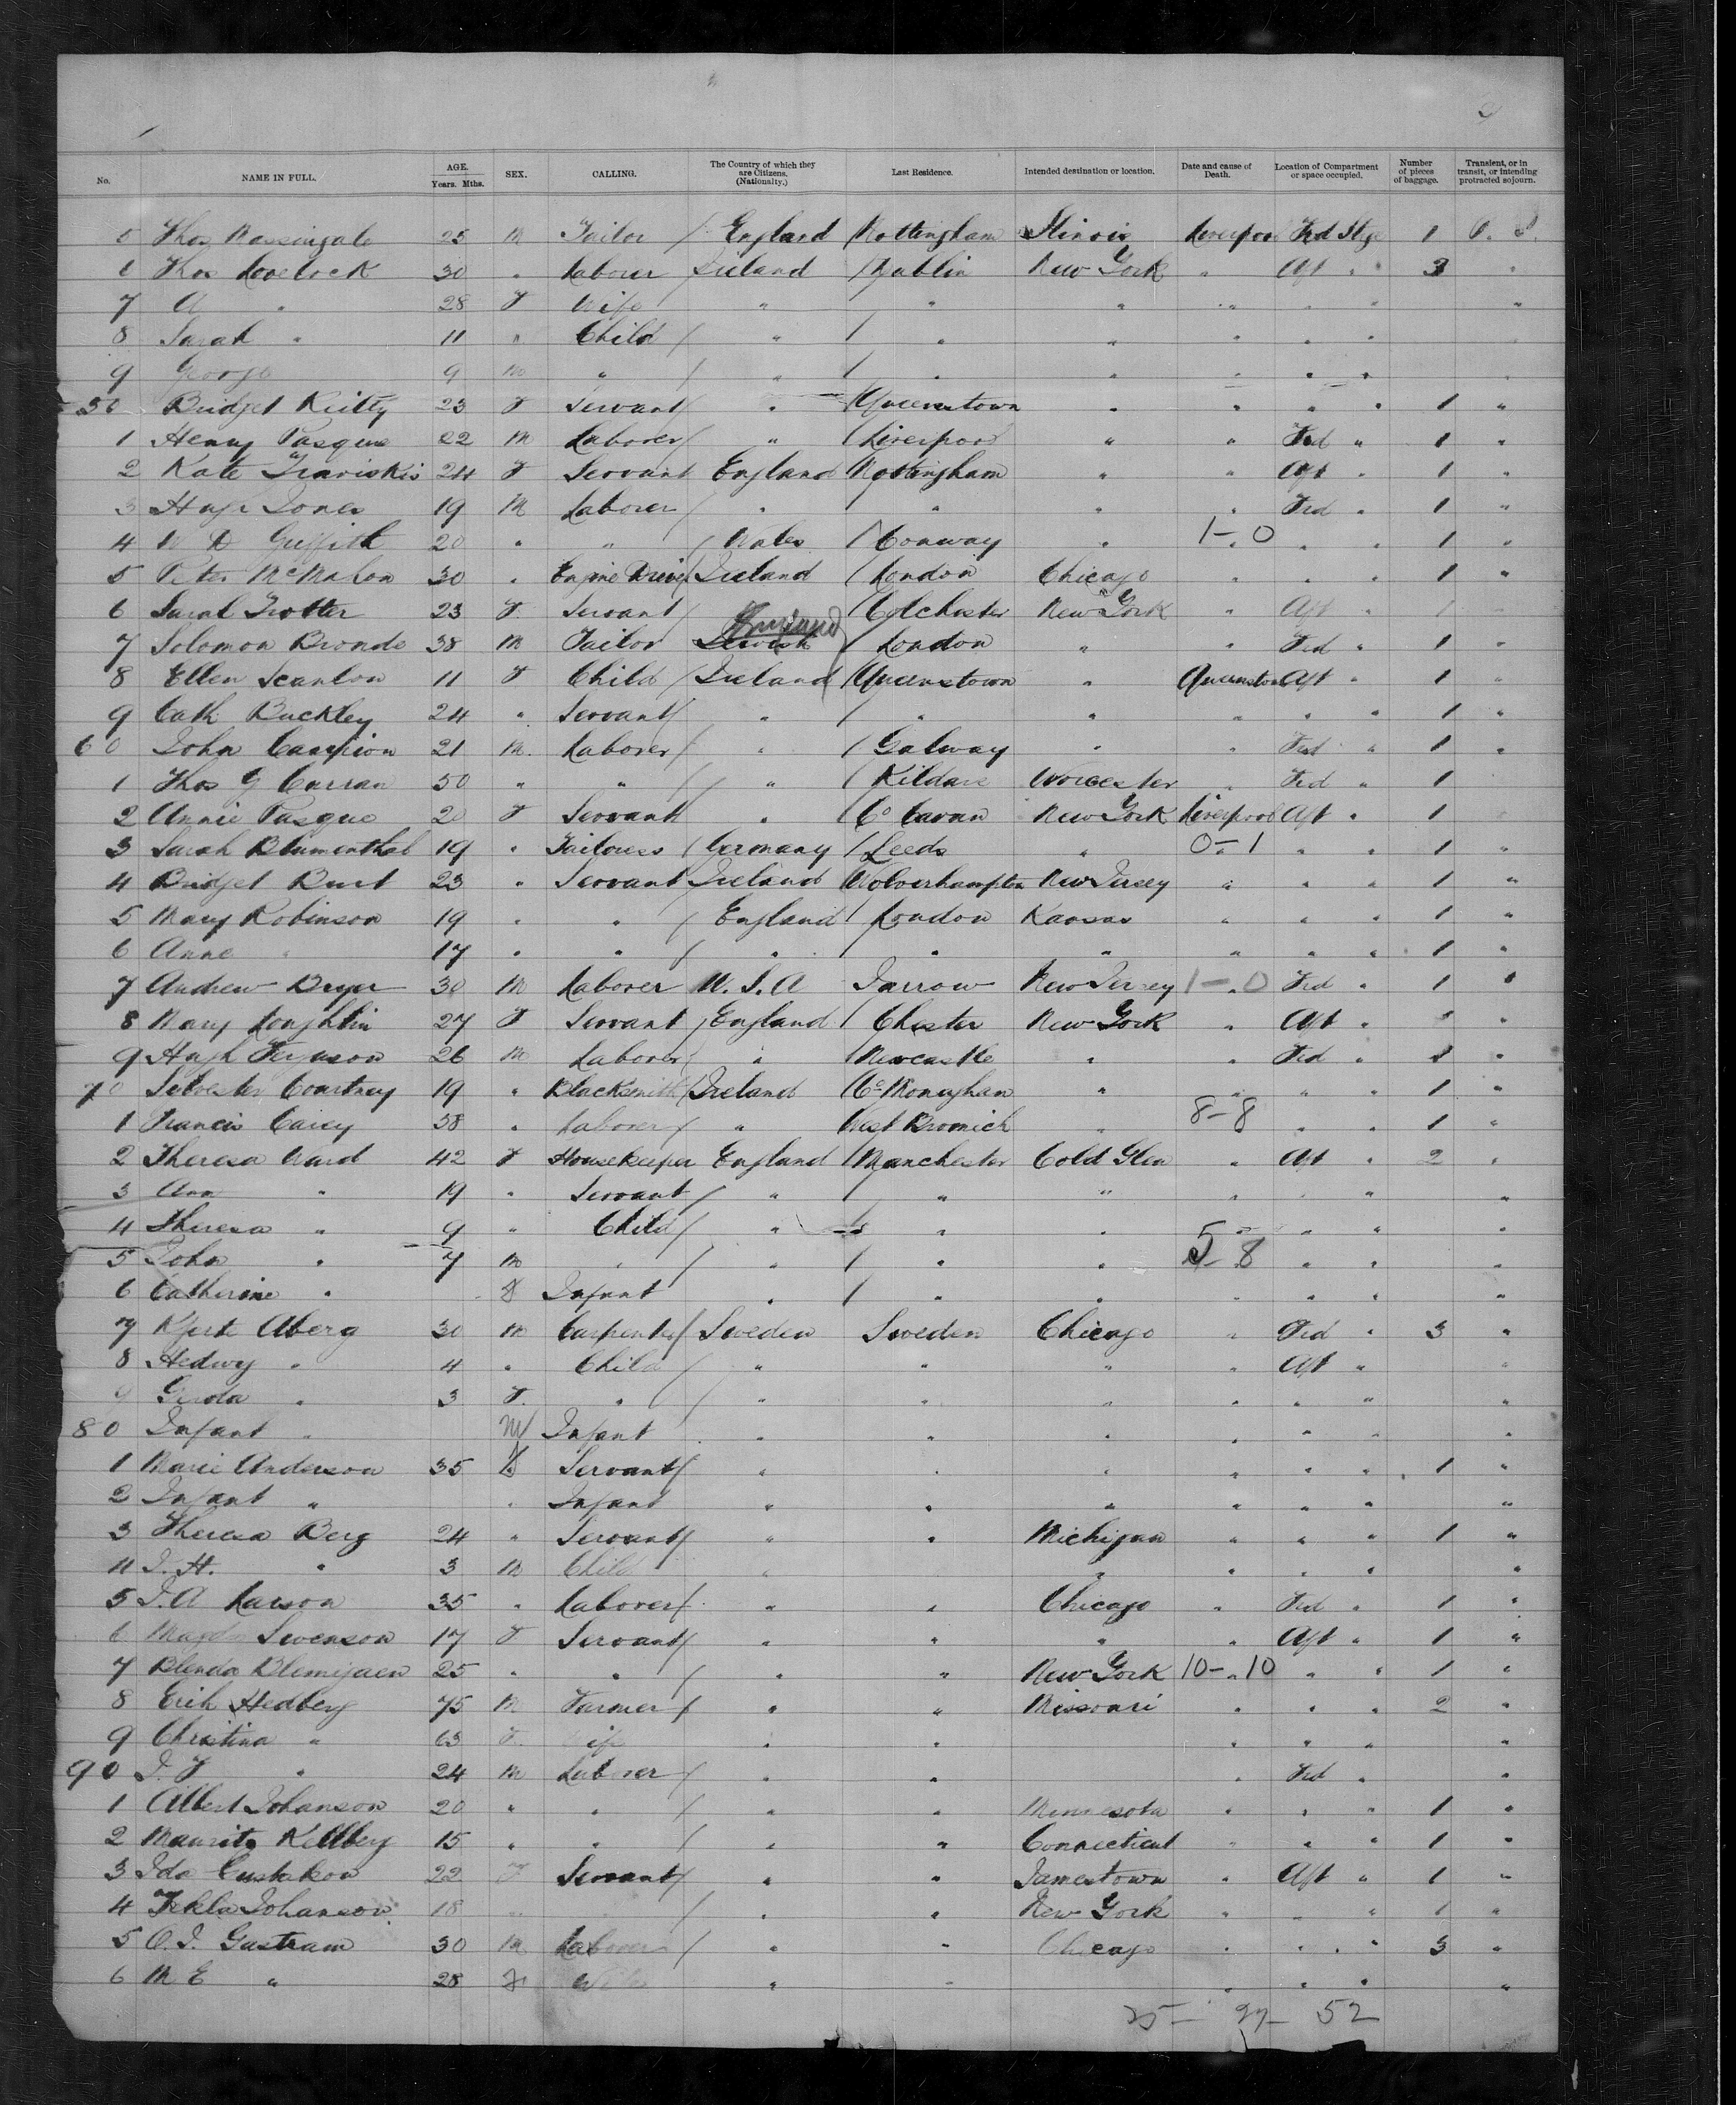 No. NAME IN FULL. AGE. Years. Mths. SEX. CALLING. The Country of which they are Citizens. (Nationality.) Last Residence. Intended destination or location. Date and cause of Death. Location of Compartment or space occupied. Number of pieces of baggage. Transient, or in transit, or intending protracted sojourn.
5 Thos Massingale 25 M Tailor / England / Nottingham Illinois Liverpool Fwd Stge 1 P. S.
6 Thos Lovelock 30 " Labourer Ireland / Dublin New York " Aft " 3 "
7 A " 28 F Wife " " " " " " "
8 Sarah " 11 " Child / " / " " " " "
9 George 9 M " / " / " " " " "
50 Bridget Reilly 23 F Servant / " / Queenstown " " " " 1 "
1 Henry Pasque 22 M Laborer / " / Liverpool " " Fwd " 1 "
2 Kate 24 F Servant England / Nottingham " " Aft " 1 "
3 Hugh Jones 19 M Laborer / " / " " " Fwd " 1 "
4 W D Griffith 20 " " / Wales / Conway " 1-0 " " 1 "
5 Peter McMahon 30 " Engine Driver / Ireland / London Chicago " " " 1 "
6 Sarah Trotter 23 F Servant / " / Colchester New York " Aft " 1 "
7 Solomon 38 M Tailor / London " " Fwd " 1 "
8 Ellen Scanlon 11 F Child / Ireland / Queenstown " Queenstown Aft " 1 "
9 Cath Buckley 24 " Servant / " / " " " " " 1 "
60 John Campion 21 M Laborer / " / Galway " " Fwd " 1 "
1 Thos G Curran 50 " " / " / Kildare Worcester " Fwd " 1
2 Annie Pasque 20 F Servant " / Co Cavan New York Liverpool Aft " 1 "
3 Sarah Blumenthal 19 " Tailoress / Germany / Leeds " 0-1 " " 1 "
4 Bridget Burt 23 " Servant / Ireland / Wolverhampton New Jersey " " " 1 "
5 Mary Robinson 19 " " / England / London Kansas " " " 1 "
6 Anne " 17 " " / " / " " " " " 1 "
7 Andrew Dryer 30 M Laborer U. S. A Jarrow New Jersey 1-0 Fwd " 1 "
8 Mary Loughlin 27 F Servant / England / Chester New York " Aft " 1 "
9 Hugh Ferguson 26 M Laborer / " / Newcastle " " Fwd " 1 "
70 Silvester Courtney 19 " Blacksmith / Ireland / Co Monaghan " " " " 1 "
1 Francis Carey 38 " Laborer / " West Bromich " 8-8 " " 1 "
2 Theresa Ward 42 F Housekeeper England / Manchester Cold Glen " Aft " 2 "
3 Ann " 19 " Servant / " / " " " " " "
4 Theresa " 9 " Child / " " " " " "
5 John " 7 M " / " / " " 5-8 " " "
6 Catherine " F Infant " / " " " " " "
7 Aberg 30 M Carpenter / Sweden Sweden Chicago " Fwd " 3 "
8 Hedwig " 4 " Child / " " " " Aft " "
9 Gerda " 3 F " / " " " " " " "
80 Infant " M Infant " " " " " " "
1 Marie Anderson 35 F Servant / " " " " " " 1 "
2 Infant " " Infant " " " " " " "
3 Theresa Berg 24 " Servant / " " Michigan " " " 1 "
4 J. H. " 3 M Child " " " " " "
5 J. A Larson 35 " Laborer / " " Chicago " Fwd " 1 "
6 Swenson 17 F Servant / " " " " Aft " 1 "
7 Blenda 25 " " / " " New York 10-10 " " 1 "
8 Erik Hedberg 75 M Farmer / " " Missouri " " " 2 "
9 Christina " 63 F Wife " " " " " "
90 J. F " 24 M Laborer / " " " Fwd " "
1 Albert Johanson 20 " " / " " Minnesota " " " 1 "
2 Mauritz Kellberg 15 " " / " " Connecticut " " " 1 "
3 Ida Gustafson 22 F Servant / " " Jamestown " Aft " 1 "
4 Tekla Johanson 18 " / " " New York " " " 1 "
5 O. J. Gustram 30 M Laborer / " " Chicago " " " 3 "
6 M E " 28 F Wife " " " " " "
25 - 27 - 52